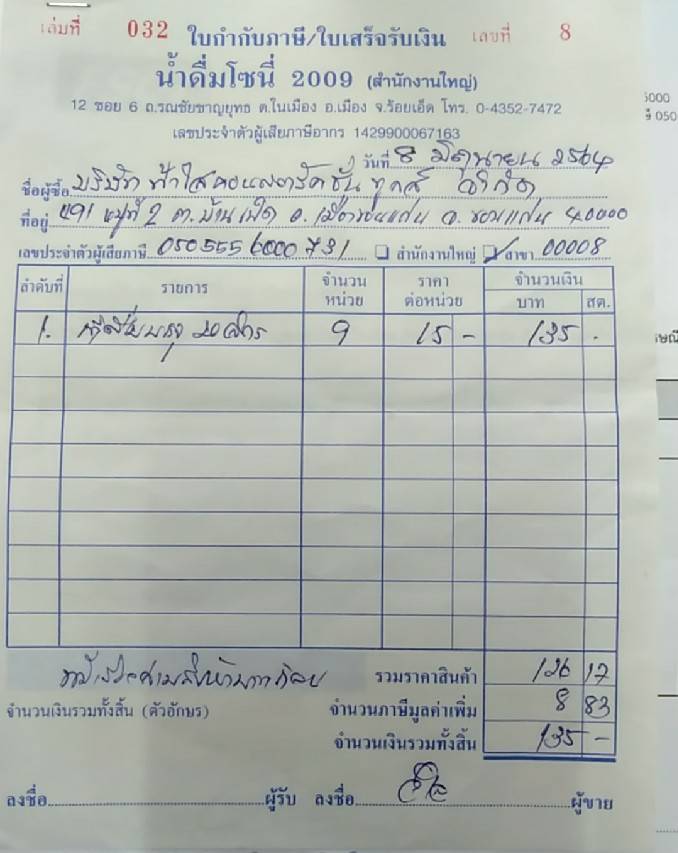 เล่มที่ 032 ใบกำกับภาษี/ใบเสร็จรับเงิน เลขที่ 8
น้ำดื่มโซนี่ 2009 (สำนักงานใหญ่)
12 ซอย 6 ถ.รณชัยชาญยุทธ ต.ในเมือง อ.เมือง จ.ร้อยเอ็ด โทร. 0-4352-7472
เลขประจำตัวผู้เสียภาษีอากร 1429900067163
วันที่ 8 มิถุนายน 2564
ชื่อผู้ซื้อ บริษัท ฟ้าใส คอนสตรัคชั่น ทูลส์ จำกัด
ที่อยู่ 491 หมู่ที่ 2 ต.บ้านเป็ด อ.เมืองขอนแก่น จ.ขอนแก่น 40000
เลขประจำตัวผู้เสียภาษี 0505556000731 สำนักงานใหญ่ สาขา 00008
ลำดับที่ รายการ จำนวนหน่วย ราคาต่อหน่วย จำนวนเงิน
บาท สต.
1. 20 ลิตร 9 15 - 135 -
รวมราคาสินค้า 126 17
จำนวนเงินรวมทั้งสิ้น (ตัวอักษร) จำนวนภาษีมูลค่าเพิ่ม 8 83
จำนวนเงินรวมทั้งสิ้น 135 -
ลงชื่อ ผู้รับ ลงชื่อ ผู้ขาย
5000
050